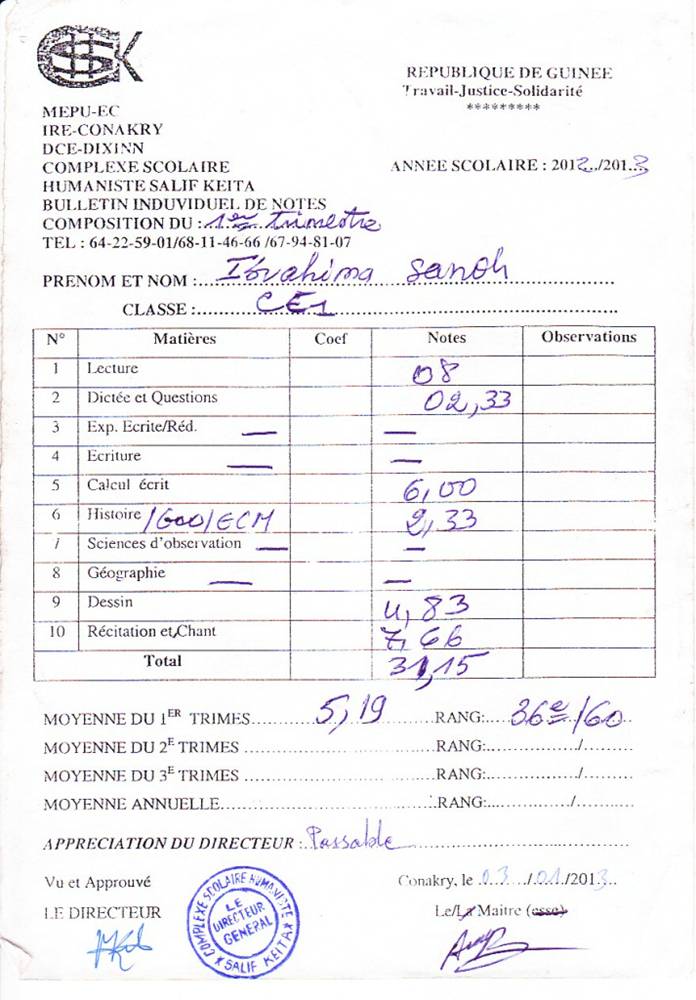 CHSK
REPUBLIQUE DE GUINEE
Travail-Justice-Solidarité
*********
MEPU-EC
IRE-CONAKRY
DCE-DIXINN
COMPLEXE SCOLAIRE
HUMANISTE SALIF KEITA
ANNEE SCOLAIRE : 2012../201..3
BULLETIN INDUVIDUEL DE NOTES
COMPOSITION DU : 1er trimestre
TEL : 64-22-59-01/68-11-46-66 /67-94-81-07
PRENOM ET NOM :.. Ibrahima Sanoh
CLASSE :.. CE1
N° Matières Coef Notes Observations
1 Lecture 08
2 Dictée et Questions 02,33
3 Exp. Ecrite/Réd. — —
4 Ecriture — —
5 Calcul écrit 6,00
6 Histoire /Géo/ECM 2,33
7 Sciences d'observation — —
8 Géographie — —
9 Dessin 4,83
10 Récitation et Chant 7,66
Total 31,15
MOYENNE DU 1ER TRIMES... 5,19 ...RANG:... 36e/60
MOYENNE DU 2E TRIMES ...RANG:.../...
MOYENNE DU 3E TRIMES ...RANG:.../...
MOYENNE ANNUELLE...RANG:.../...
APPRECIATION DU DIRECTEUR : Passable
Vu et Approuvé
Conakry, le 03/01/2013
LE DIRECTEUR
Le/La Maitre (esse)
COMPLEXE SCOLAIRE HUMANISTE
LE DIRECTEUR GENERAL
SALIF KEITA